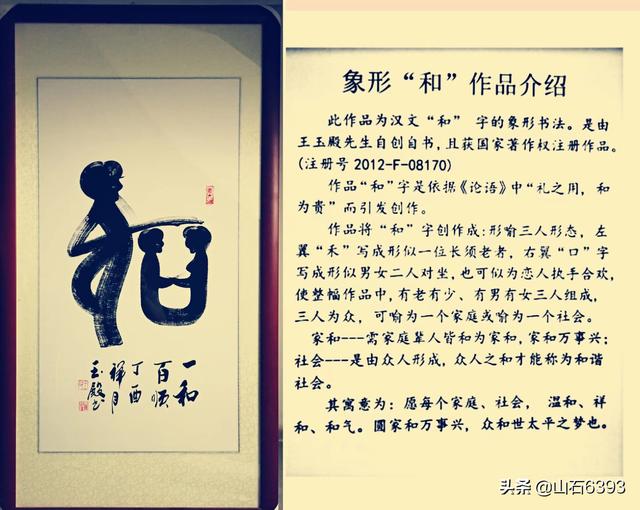 和
一和
百顺
丁酉
祥月
玉殿书
象形“和”作品介绍
此作品为汉文“和” 字的象形书法。是由
王玉殿先生自创自书,且获国家著作权注册作品。
(注册号 2012-F-08170)
作品“和”字是依据《论语》中“礼之用,和
为贵”而引发创作。
作品将“和”字创作成:形喻三人形态,左
翼“禾”写成形似一位长须老者,右翼“口”字
写成形似男女二人对坐,也可似为恋人执手合欢,
使整幅作品中,有老有少、有男有女三人组成,
三人为众,可喻为一个家庭或喻为一个社会。
家和---需家庭辈人皆和为家和,家和万事兴;
社会---是由众人形成,众人之和才能称为和谐
社会。
其寓意为:愿每个家庭、社会, 温和、祥
和、和气。圓家和万事兴,众和世太平之梦也。
头条 @山石6393